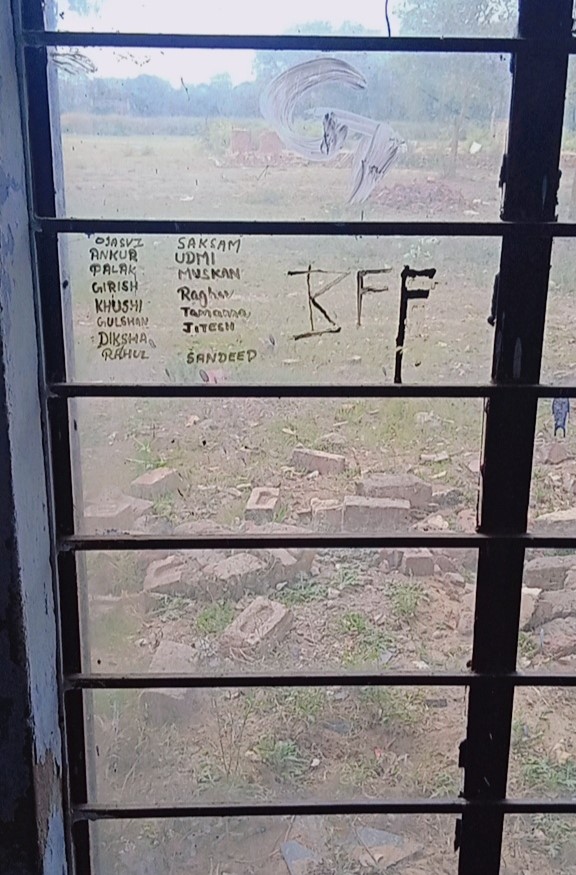 OJASVI
ANKUR
PALAK
GIRISH
KHUSHI
GULSHAN
DIKSHA
RAHUL
SAKSAM
UDMI
MUSKAN
Raghav
Tamanna
JITESH
SANDEEP
KFF